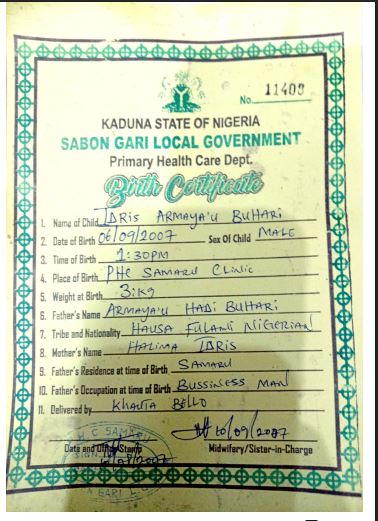 No. 11408
KADUNA STATE OF NIGERIA
SABON GARI LOCAL GOVERNMENT
Primary Health Care Dept.
Birth Certificate
1. Name of Child IDRIS ARMAYA'U BUHARI
2. Date of Birth 06/09/2007 Sex Of Child MALE
3. Time of Birth 1:30PM
4. Place of Birth PHC SAMARU CLINIC
5. Weight at Birth 3:kg
6. Father's Name ARMAYA'U HADI BUHARI
7. Tribe and Nationality HAUSA FULANI NIGERIAN
8. Mother's Name HALIMA IDRIS
9. Father's Residence at time of Birth SAMARU
10. Father's Occupation at time of Birth BUSSINESS MAN
11. Delivered by BELLO
SAMARU
Date and Stamp
Midwifery/Sister-in-Charge
GARI